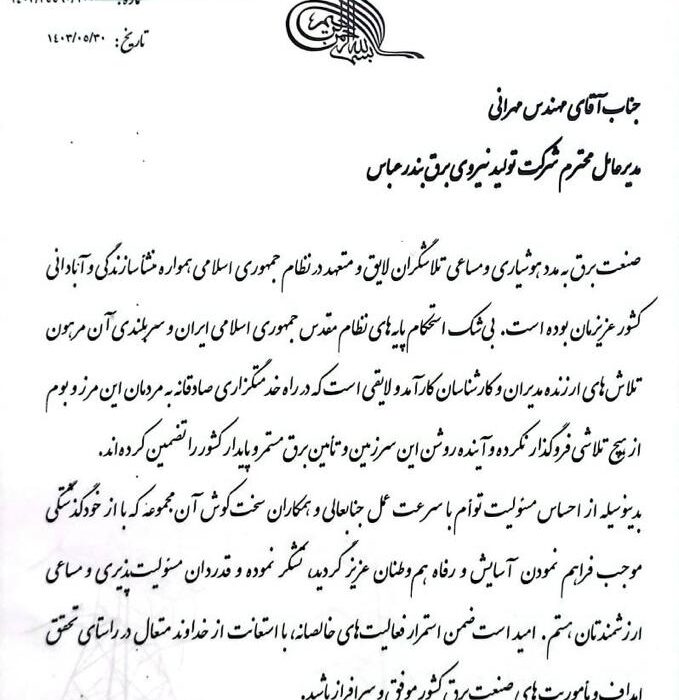 تاریخ: ۱۴۰۳/۰۵/۳۰
جناب آقای مهندس مهرانی
مدیرعامل محترم شرکت تولید نیروی برق بندرعباس
صنعت برق به مدد هوشیاری و مساعی تلاشگران لایق و متعهد در نظام جمهوری اسلامی همواره منشأ سازندگی و آبادانی
کشور عزیزمان بوده است. بی‌شک استحکام پایه‌های نظام مقدس جمهوری اسلامی ایران و سربلندی آن مرهون
تلاش‌های ارزنده مدیران و کارشناسان کارآمد و لایقی است که در راه خدمتگزاری صادقانه به مردمان این مرز و بوم
از هیچ تلاشی فروگذار نکرده و آینده روشن این سرزمین و تأمین برق مستمر و پایدار کشور را تضمین کرده‌اند.
بدینوسیله از احساس مسئولیت توأم با سرعت عمل جنابعالی و همکاران سخت‌کوش آن مجموعه که با از خودگذشتگی
موجب فراهم نمودن آسایش و رفاه هم‌وطنان عزیز گردید، تشکر نموده و قدردان مسئولیت‌پذیری و مساعی
ارزشمندتان هستم. امید است ضمن استمرار فعالیت‌های خالصانه، با استعانت از خداوند متعال در راستای تحقق
اهداف و مأموریت‌های صنعت برق کشور موفق و سرافراز باشید.